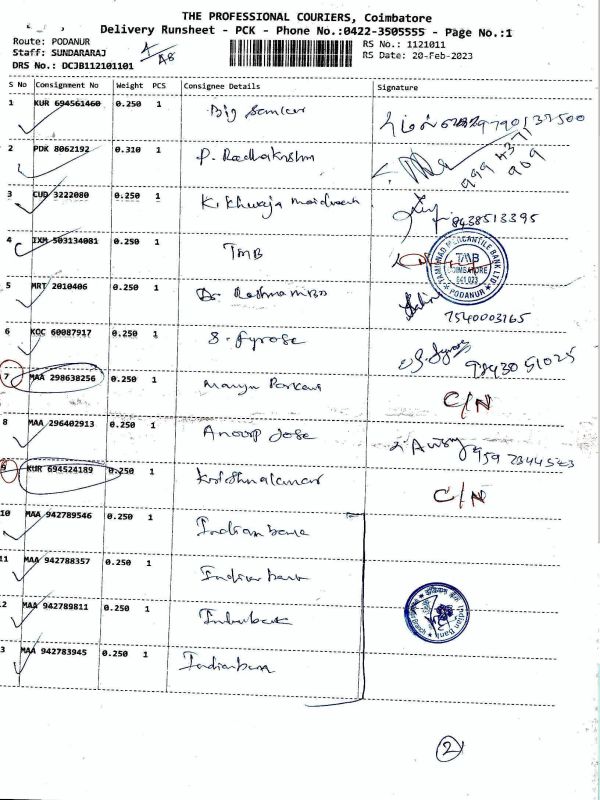 THE PROFESSIONAL COURIERS, Coimbatore
Delivery Runsheet - PCK - Phone No.:0422-3505555 - Page No.:1
Route: PODANUR
Staff: SUNDARARAJ
DRS No.: DCJB112101101
RS No.: 1121011
RS Date: 20-Feb-2023
S No Consignment No Weight PCS Consignee Details Signature
1 KUR 694561460 0.250 1
2 PDK 8062192 0.310 1 P. Radhakrishn
3 CUD 3222080 0.250 1 K. Khwaja 8438513395
4 IXM 503134081 0.250 1 TMB
TAMILNAD MERCANTILE BANK LTD
TMB
COIMBATORE
641 023
PODANUR
5 MRT 2010406 0.250 1 7540003165
6 KOC 60087917 0.250 1 S. Fyrose 9843051025
7 MAA 298638256 0.250 1 C/N
8 MAA 296402913 0.250 1 Anoop Jose
9 KUR 694524189 0.250 1 Krishnakumar C/N
10 MAA 942789546 0.250 1 Indian bank
11 MAA 942788357 0.250 1 Indian bank
12 MAA 942789811 0.250 1 Indian bank
Indian Bank
13 MAA 942783945 0.250 1 Indian bank
2